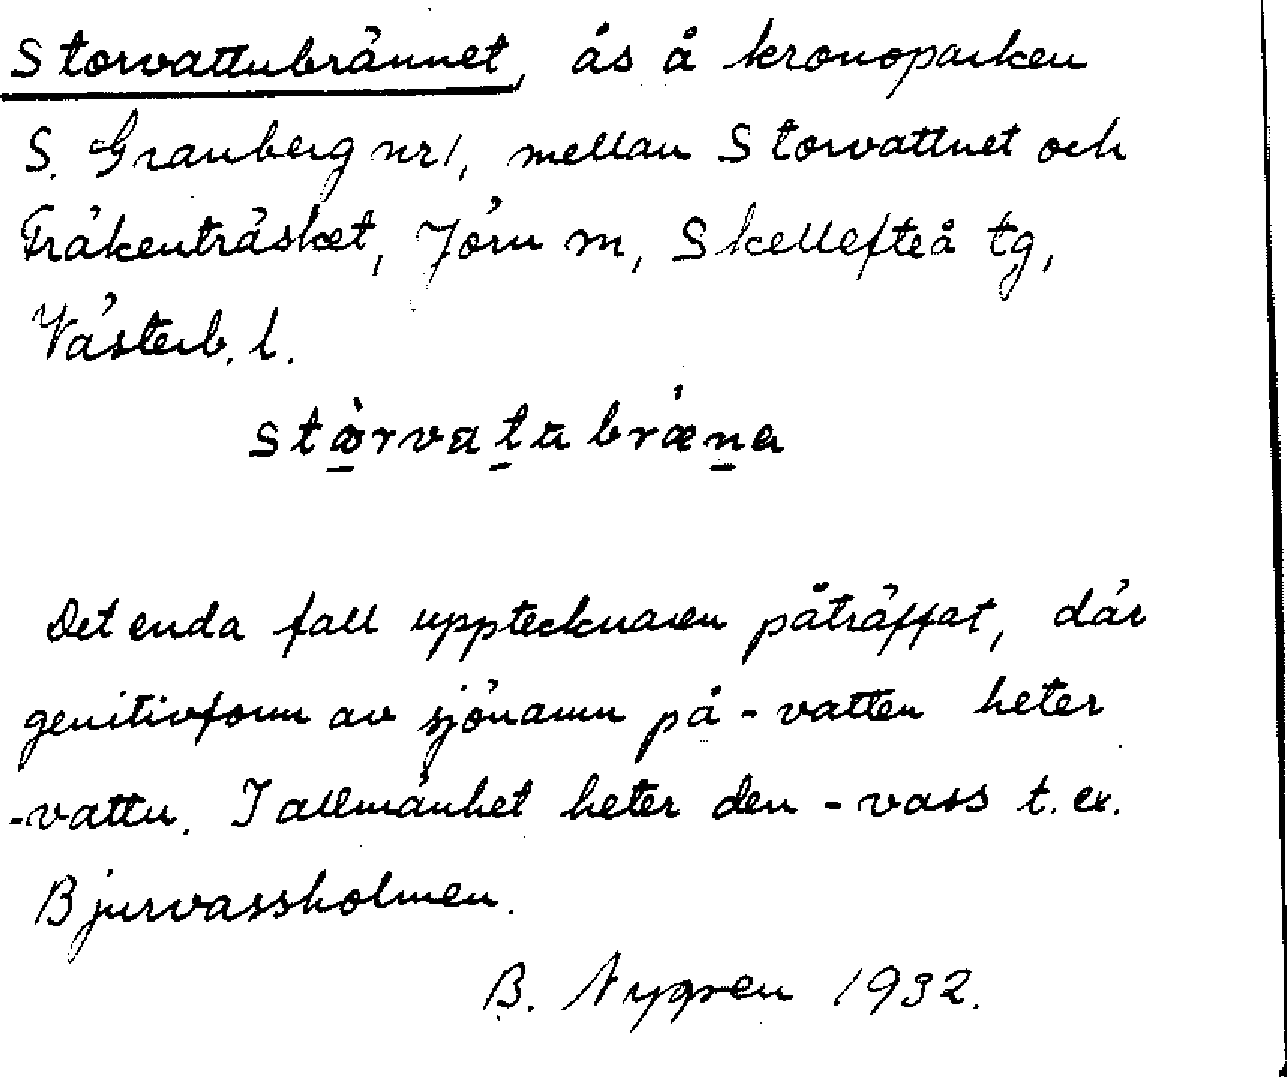 Storvattubrännet, ås å kronoparken
S. Granberg nr 1, mellan Storvattnet och
Fräkenträsket, Jörn m, Skellefteå tg,
Västerb. l.
stò̱rvat̠ɯbrǽn̠a
Det enda fall upptecknaren påträffat, där
genitivform av sjönamn på -vatten heter
-vattu. I allmänhet heter den -vass t. ex.
Bjurvassholmen.
B. Nygren 1932.